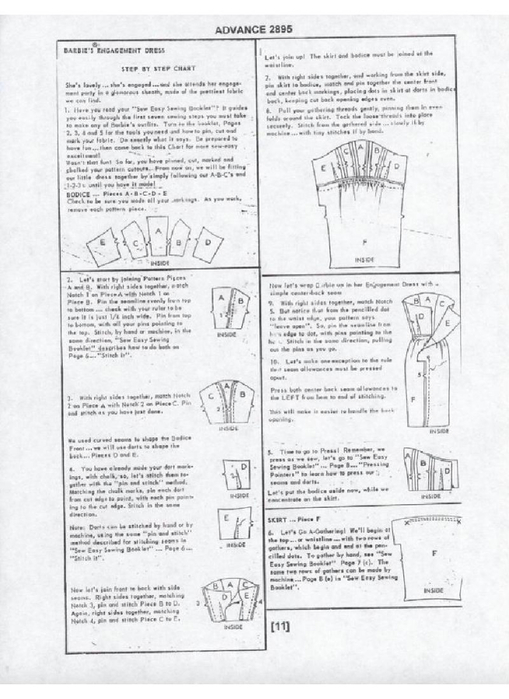 ADVANCE 2895
BARBIE'S ENGAGEMENT DRESS
STEP BY STEP CHART
She's lovely ... she's engaged ... and she attends her engage-
ment party in a glamorous sheath, made of the prettiest fabric
we can find.
1. Have you read your "Sew Easy Sewing Booklet"? It guides
you easily through the first seven sewing steps you must take
to make any of Barbie's outfits. Turn to the booklet, Pages
2, 3, 4 and 5 for the tools you need and how to pin, cut and
mark your fabric. Do exactly what it says. Be prepared to
have fun ... then come back to this Chart for more sew-easy
excitement!
Wasn't that fun! So far, you have pinned, cut, marked and
our little dress together by simply following our A-B-C's and
1-2-3's until you have it made!
BODICE ... Pieces A - B - C - D - E
Check to be sure you made all your markings. As you work,
remove each pattern piece.
E C A B D
INSIDE
2. Let's start by joining Pattern Pieces
A and B. With right sides together, match
Notch 1 on Piece A with Notch 1 on
Piece B. Pin the seamline evenly from top
to bottom ... check with your ruler to be
sure it is just 1/4 inch wide. Pin from top
to bottom, with all your pins pointing to
the top. Stitch, by hand or machine, in the
same direction, "Sew Easy Sewing
Booklet" describes how to do both on
Page 6 ... "Stitch it".
A B
1
INSIDE
3. With right sides together, match Notch
2 on Piece A with Notch 2 on Piece C. Pin
and stitch as you have just done.
C A B
2
INSIDE
We used curved seams to shape the Bodice
Front ... we will use darts to shape the
back ... Pieces D and E.
4. You have already made your dart mark-
ings, with chalk, so, let's stitch them to-
gether with the "pin and stitch" method.
Matching the chalk marks, pin each dart
from cut edge to point, with each pin point-
ing to the cut edge. Stitch in the same
direction.
D
INSIDE
Note: Darts can be stitched by hand or by
machine, using the same "pin and stitch"
method described for stitching seams in
"Sew Easy Sewing Booklet" ... Page 6 ...
"Stitch it".
E
INSIDE
Now let's join front to back with side
seams. Right sides together, matching
Notch 3, pin and stitch Piece B to D.
Again, right sides together, matching
Notch 4, pin and stitch Piece C to E.
B A C
D E
3 4
INSIDE
Let's join up! The skirt and bodice must be joined at the
waistline.
7. With right sides together, and working from the skirt side,
pin skirt to bodice, match and pin together the center front
and center back markings, placing dots in skirt at darts in bodice
back, keeping cut back opening edges even.
8. Pull your gathering threads gently, pinning them in even
folds around the skirt. Tack the loose threads into place
securely. Stitch from the gathered side ... slowly if by
machine ... with tiny stitches if by hand.
E C A B D
F
INSIDE
Now let's wrap Barbie up in her Engagement Dress with a
simple center-back seam
9. With right sides together, match Notch
5. But notice that from the pencilled dot
to the waist edge, your pattern says
"leave open". So, pin the seamline from
edge to dot, with pins pointing to the
Stitch in the same direction, pulling
out the pins as you go.
10. Let's make one exception to the rule
that seam allowances must be pressed
apart.
Press both center back seam allowances to
the LEFT from hem to end of stitching.
This will make it easier to handle the back
opening.
B A C
E
5
F
INSIDE
5. Time to go to Press! Remember, we
press as we sew, let's go to "Sew Easy
Sewing Booklet" ... Page 8 ... "Pressing
Pointers" to learn how to press our
seams and darts.
Let's put the bodice aside now, while we
concentrate on the skirt.
A B D
INSIDE
SKIRT ... Piece F
6. Let's Go A-Gathering! We'll begin at
the top ... or waistline ... with two rows of
gathers, which begin and end at the pen-
cilled dots. To gather by hand, see "Sew
Easy Sewing Booklet" Page 7 (c). The
same two rows of gathers can be made by
machine ... Page 8 (e) in "Sew Easy Sewing
Booklet".
F
INSIDE
[11]